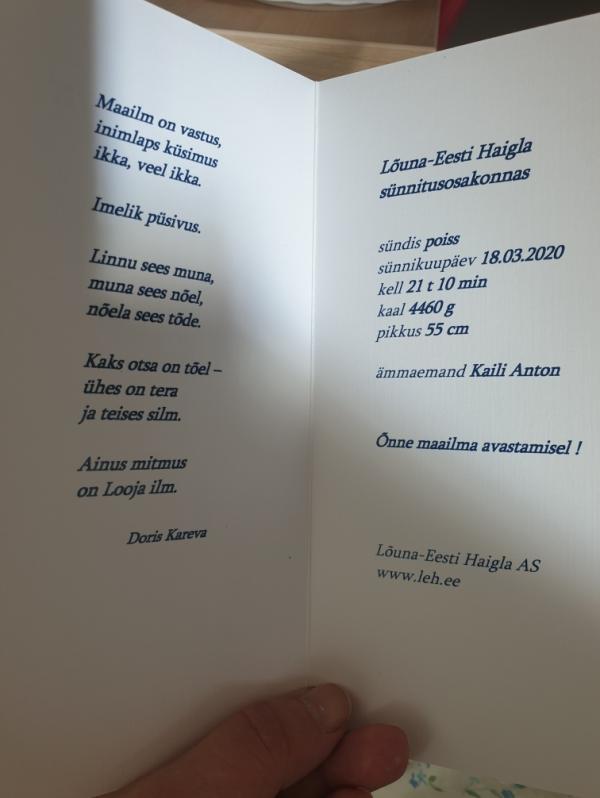 Maailm on vastus,
inimlaps küsimus
ikka, veel ikka.
Imelik püsivus.
Linnu sees muna,
muna sees nõel,
nõela sees tõde.
Kaks otsa on tõel –
ühes on tera
ja teises silm.
Ainus mitmus
on Looja ilm.
Doris Kareva
Lõuna-Eesti Haigla
sünnitusosakonnas
sündis poiss
sünnikuupäev 18.03.2020
kell 21 t 10 min
kaal 4460 g
pikkus 55 cm
ämmaemand Kaili Anton
Õnne maailma avastamisel !
Lõuna-Eesti Haigla AS
www.leh.ee